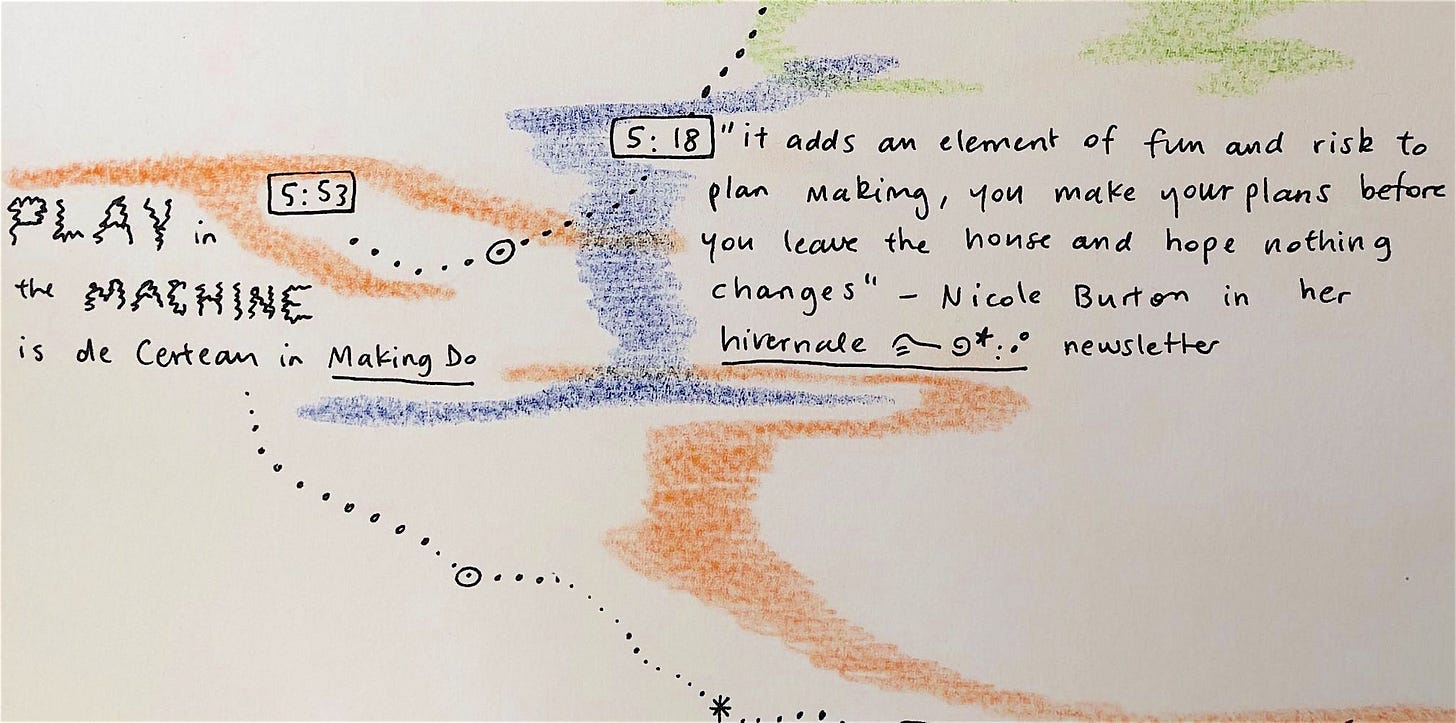 5:18 "it adds an element of fun and risk to
plan making, you make your plans before
you leave the house and hope nothing
changes" – Nicole Burton in her
hivernale newsletter
5:53
PLAY in
the MACHINE
is de Certeau in Making Do